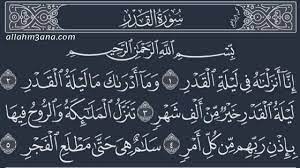 سُورَةُ الْقَدْرِ
allahm3ana.com
بِسْمِ اللَّهِ الرَّحْمَٰنِ الرَّحِيمِ
إِنَّا أَنزَلْنَاهُ فِي لَيْلَةِ الْقَدْرِ ١ وَمَا أَدْرَاكَ مَا لَيْلَةُ الْقَدْرِ ٢
لَيْلَةُ الْقَدْرِ خَيْرٌ مِّنْ أَلْفِ شَهْرٍ ٣ تَنَزَّلُ الْمَلَائِكَةُ وَالرُّوحُ فِيهَا
بِإِذْنِ رَبِّهِم مِّن كُلِّ أَمْرٍ ٤ سَلَامٌ هِيَ حَتَّىٰ مَطْلَعِ الْفَجْرِ ٥